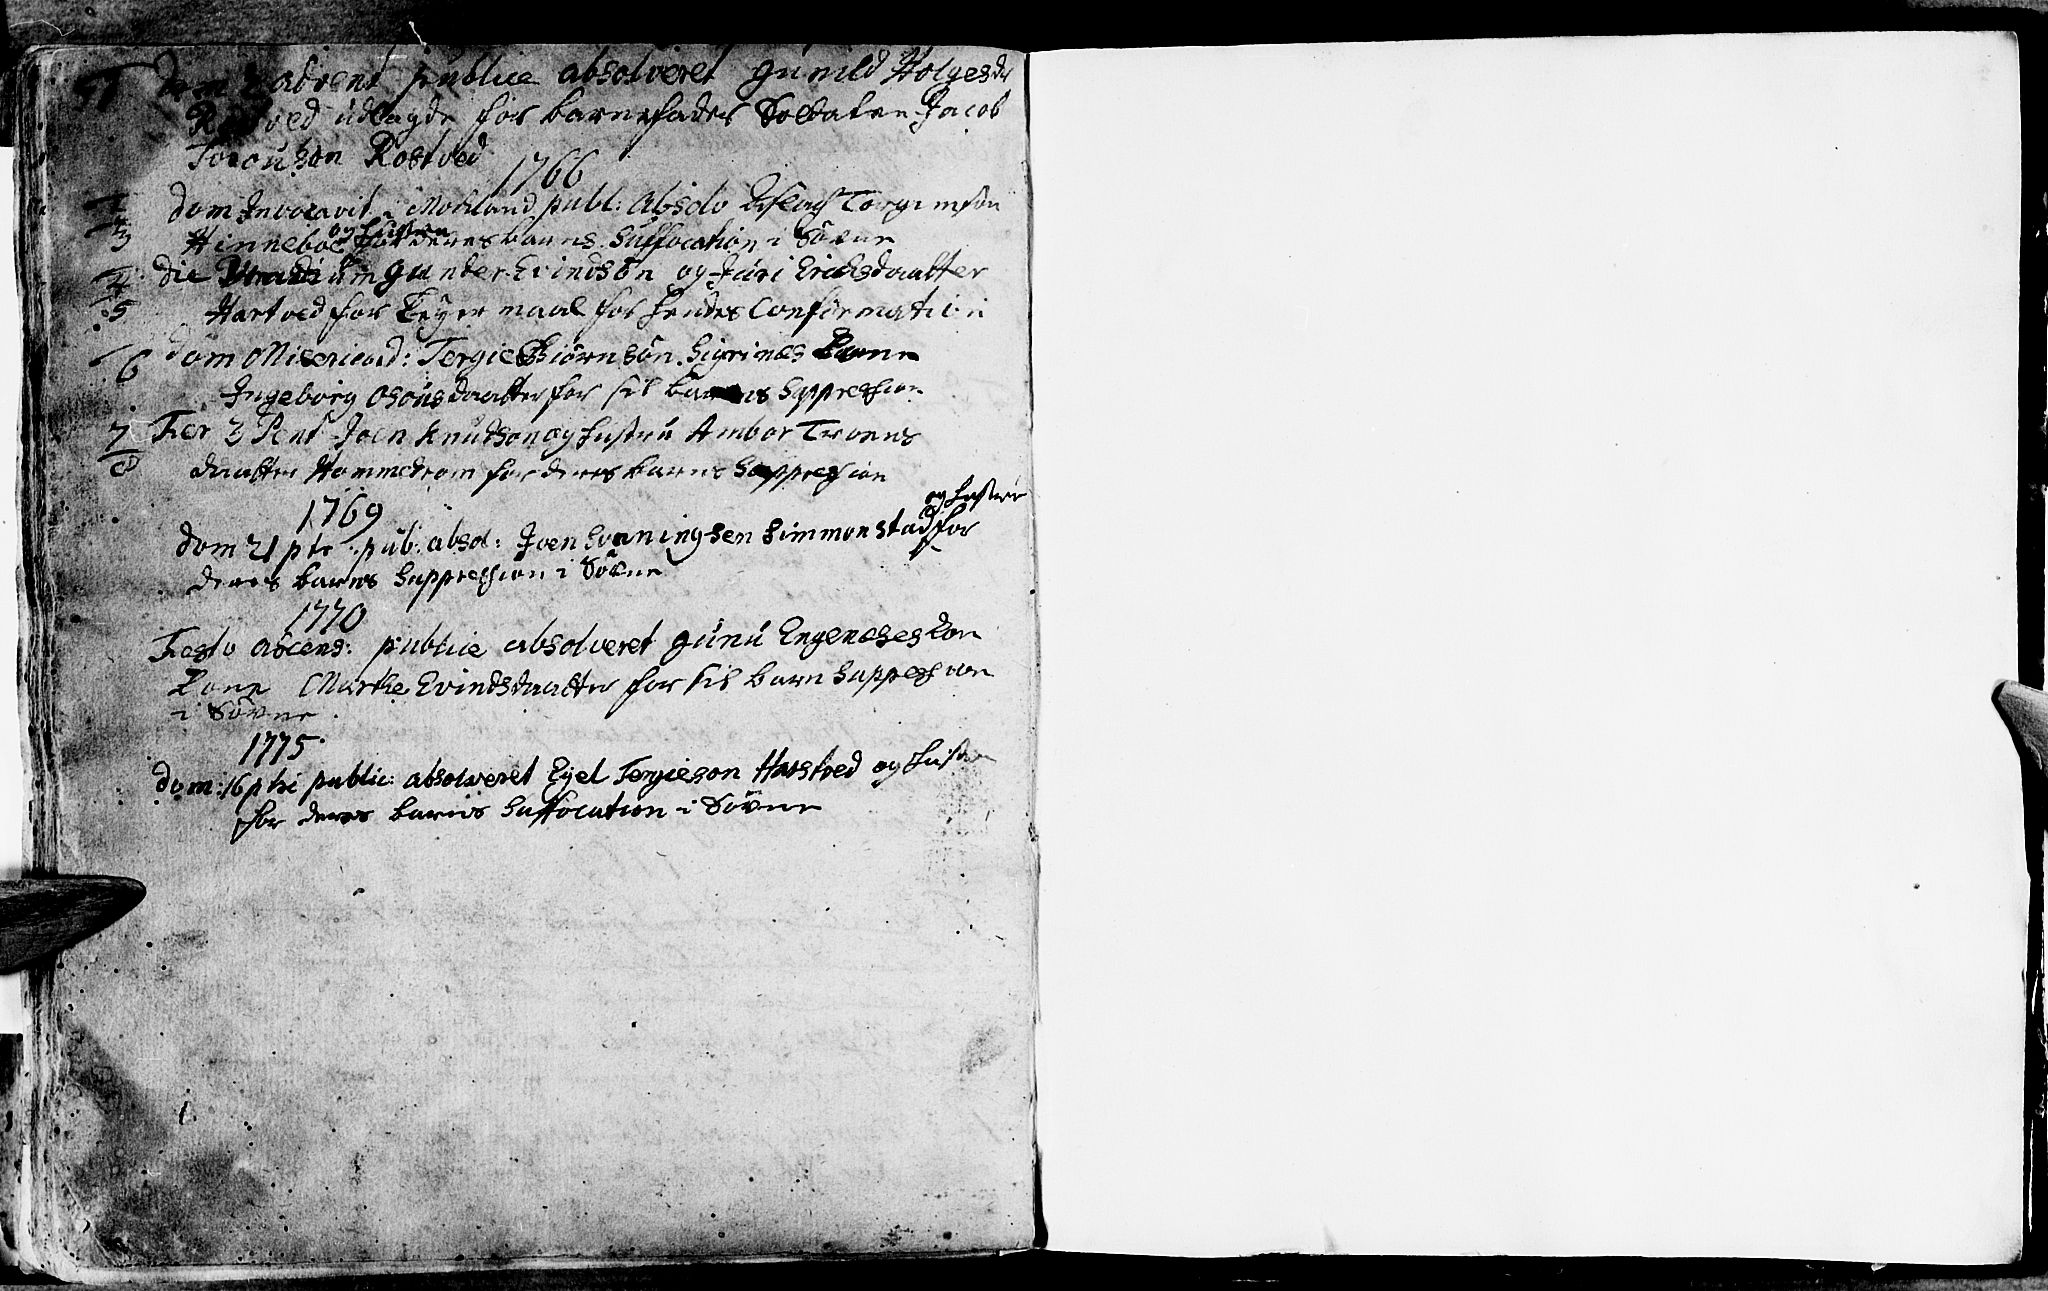 Dom 3 advent publice absolveret Gunild Holgesdr
Rostved udlagde for barnefader Soldaten Jacob
Rostved
1766
1
3
Dom Invocavit i Mokland publ: absolv Torgimsøn
og hustru
Hinneboe for deres barns Suffocation i Søvne
4
5
Die Viridium Gunder Evindsøn og Juri Erichsdaatter
Hartved for Leyermaal for hendes Confirmation
6
Dom Misericord: Tergie Biørnsøn Sigrinæs Kone
Ingeborg daatter for sit barns Suppression
7
8
Fer 3 Pent Joen Knudsøn og hustru Ambor Troens
daatter Hommedrom for deres barns Suppression
1769
og hustrue
Dom 21 p tr: pub: absol: Joen Svenningsen Simmonstad for
deres barns Suppression i Søvne
1770
Festo ascens: publice absolveret Gunu Engenæses
Kone Marthe Evindsdaatter for sit barn Suppression
i Søvne
1775
Dom: 16 p tri public: absolveret Eyel Tergieson Harstved og hustru
for deres barns Suffocation i Søvne